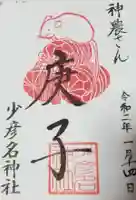 神農さん
令和二年一月四日
庚子
少彦名神社